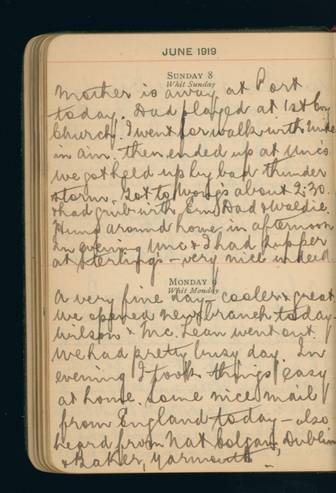 JUNE 1919
SUNDAY 8
Whit Sunday
Mother is away at Port
today. Dad played at 1st
Church. I went for walk with
in am. then ended up at Uncs
we got held up by bad thunder
storm. Got to Wongs about 2:30
& had grub with Ern, Dad &
Hung around home in afternoon
In evening Unc & I had supper
at Sterlings - very nice indeed.
MONDAY 9
Whit Monday
A very fine day - cooler & great
we opened new branch today.
Wilson & Mc.Lean went out.
We had pretty busy day. In
evening I took things easy
at home. Some nice mail
from England today - also
heard from Nat Colgan, Dublin
& Baker, Yarmouth.